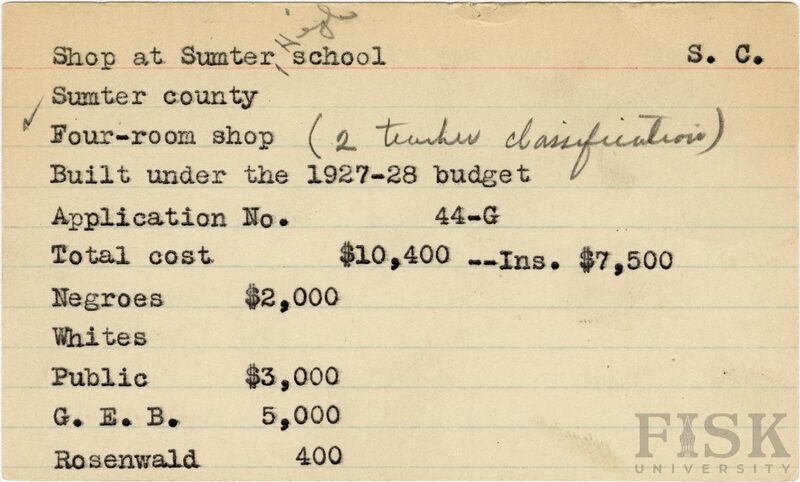 Shop at Sumter High school S. C.
Sumter county
Four-room shop (2 teacher classification)
Built under the 1927-28 budget
Application No. 44-G
Total cost $10,400 --Ins. $7,500
Negroes $2,000
Whites
Public $3,000
G. E. B. 5,000
Rosenwald 400
FISK
UNIVERSITY